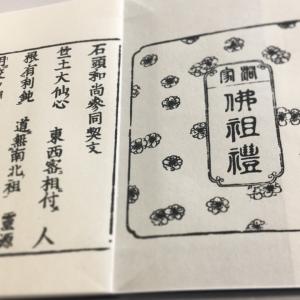 洞家
佛祖禮
石頭和尚參同契文
竺土大仙心 東西密相付 人
根有利鈍 道無南北祖 靈源